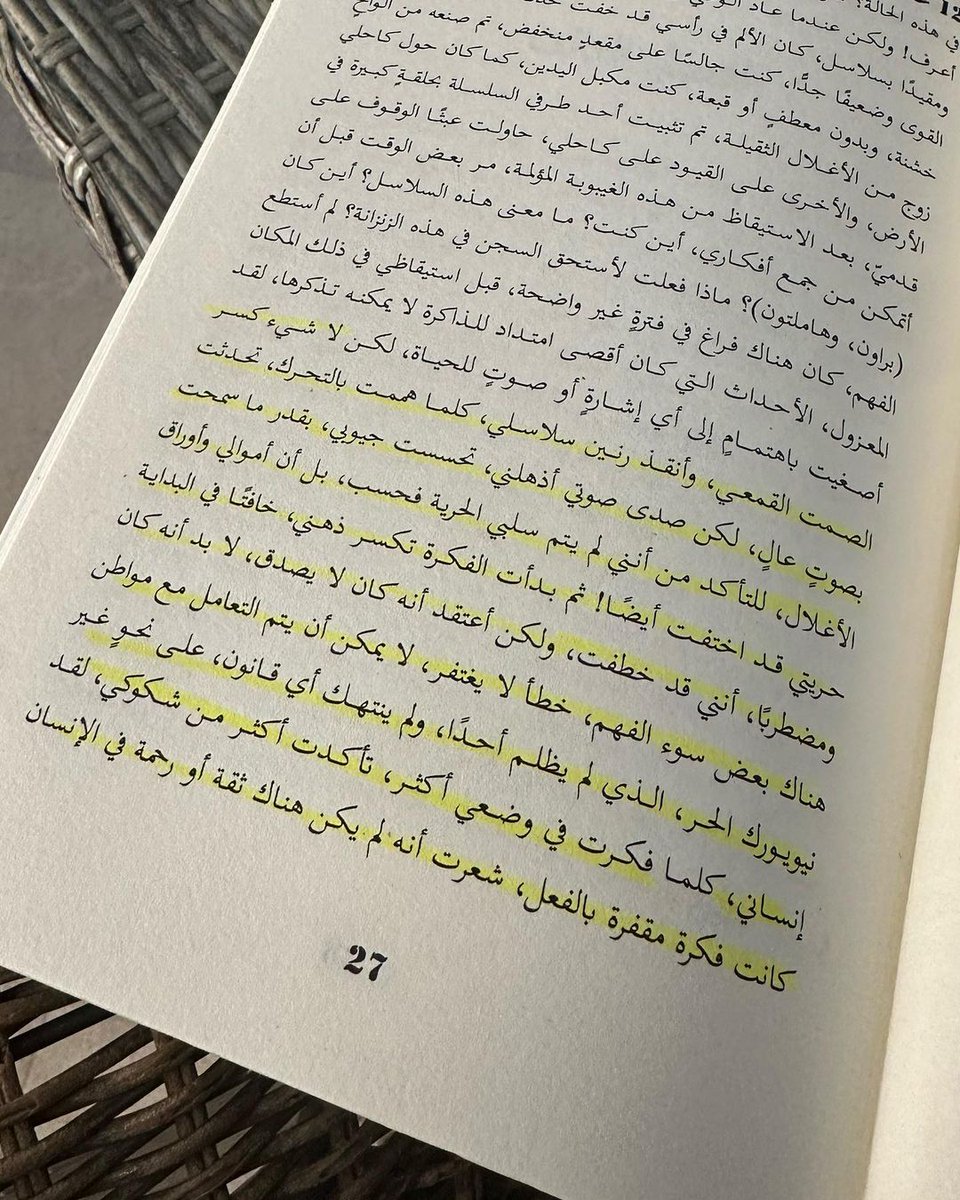 12
في هذه الحالة؟
أعرف! ولكن عندما عاد
ومقيدًا بسلاسل، كان الألم في رأسي قد خفت
القوى وضعيفًا جدًّا، كنت جالسًا على مقعدٍ منخفض، تم صنعه من ألواحٍ
خشنة، وبدون معطفٍ أو قبعة، كنت مكبل اليدين، كما كان حول كاحلي
زوج من الأغلال الثقيلة، تم تثبيت أحد طرفي السلسلة بحلقةٍ كبيرة في
الأرض، والأخرى على القيود على كاحلي، حاولت عبثًا الوقوف على
قدميّ، بعد الاستيقاظ من هذه الغيبوبة المؤلمة، مر بعض الوقت قبل أن
أتمكن من جمع أفكاري، أين كنت؟ ما معنى هذه السلاسل؟ أين كان
(براون، وهاملتون)؟ ماذا فعلت لأستحق السجن في هذه الزنزانة؟ لم أستطع
الفهم، كان هناك فراغ في فترةٍ غير واضحة، قبل استيقاظي في ذلك المكان
المعزول، الأحداث التي كان أقصى امتداد للذاكرة لا يمكنه تذكرها، لقد
أصغيت باهتمامٍ إلى أي إشارةٍ أو صوتٍ للحياة، لكن لا شيء كسر
الصمت القمعي، وأنقذ رنين سلاسلي، كلما هممت بالتحرك، تحدثت
بصوتٍ عالٍ، لكن صدى صوتي أذهلني، تحسست جيوبي، بقدر ما سمحت
الأغلال، للتأكد من أنني لم يتم سلبي الحرية فحسب، بل أن أموالي وأوراق
حريتي قد اختفت أيضًا! ثم بدأت الفكرة تكسر ذهني، خافتًا في البداية
ومضطربًا، أنني قد خطفت، ولكن أعتقد أنه كان لا يصدق، لا بد أنه كان
هناك بعض سوء الفهم، خطأ لا يغتفر، لا يمكن أن يتم التعامل مع مواطن
نيويورك الحر، الذي لم يظلم أحدًا، ولم ينتهك أي قانون، على نحوٍ غير
إنساني، كلما فكرت في وضعي أكثر، تأكدت أكثر من شكوكي، لقد
كانت فكرة مقفرة بالفعل، شعرت أنه لم يكن هناك ثقة أو رحمة في الإنسان
27